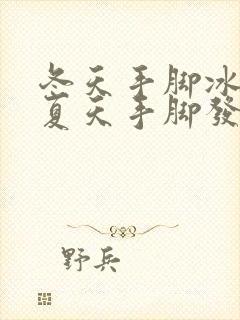 冬天手脚冰
夏天手脚發
野兵